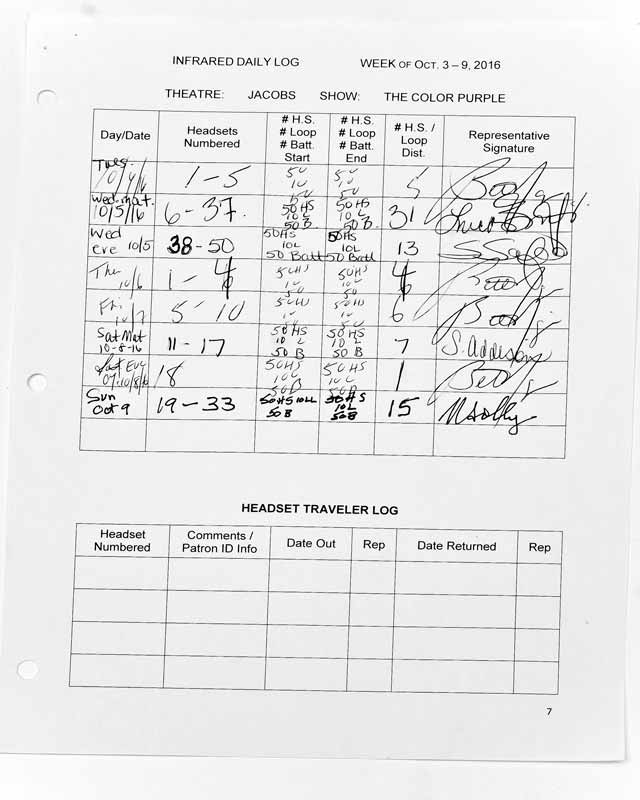 INFRARED DAILY LOG WEEK OF OCT. 3 – 9, 2016
THEATRE: JACOBS SHOW: THE COLOR PURPLE
Day/Date Headsets Numbered # H.S. # Loop # Batt. Start # H.S. # Loop # Batt. End # H.S. / Loop Dist. Representative Signature
Tues 10/4/16 1-5 50 10 50 50 10 50 5
Wed. mat. 10/5/16 6-37. 50 HS 10 L 50 B. 50 HS 10 L 50 B. 31
Wed eve 10/5 38-50 50 HS 10L 50 Batt 50 HS 10L 50 Batt 13
Thu 10/6 1-4 50HS 10 50 50HS 10 50 4
Fri 10/7 5-10 50HS 10 50 50HS 10 50 6
Sat Mat 10-8-16 11-17 50 HS 10 L 50 B 50 HS 10 L 50 B 7 S. Addison
Sat Eve 10/8/16 18 50HS 10L 50B 50HS 10L 50B 1
Sun Oct 9 19-33 50HS 10L 50B 50HS 10L 50B 15
HEADSET TRAVELER LOG
Headset Numbered Comments / Patron ID Info Date Out Rep Date Returned Rep
7